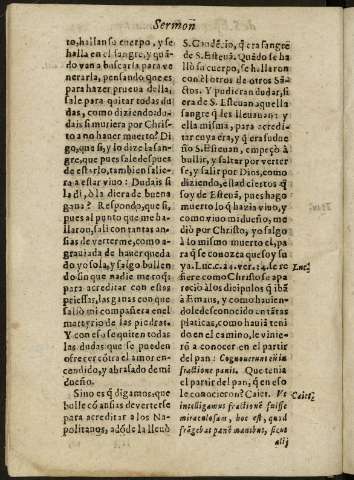 Sermon
to, hallan su cuerpo, y se
halla en el sangre, y quã-
do van a buscarla para ve
nerarla, pensando que es
para hazer prueua della,
sale para quitar todas du
das, como diziendo: du-
dais si muriera por Chris-
to a no hauer muerto? Di
go, que si, y lo dize la san-
gre, que pues sale despues
de estarlo, tambien salie-
ra a estar viuo: Dudais si
la di, ò la diera de buena
gana? Respondo, que si,
pues al punto que me ha-
llaron, sali con tantas an-
sias de verterme, como a-
grauiada de hauer queda
do yo sola, y salgo bullen
do sin que nadie me toque
para acreditar con estos
priessas, las ganas con que
saliò mi compañera en el
martyrio de las piedras.
Y con esso se quiten todas
las dudas que se pueden
ofrecer cõtra el amor en-
cendido, y abrasado de mi
dueño.
Sino es q̃ digamos, que
bulle cõ ansias de verterse
para acreditar a los Na-
politanos, adõde la lleuò
S. Gaudẽcio, q̃ era sangre
de S. Esteuã. Quãdo se ha
llò su cuerpo, se hallaron
con èl otros de otros Sã-
ctos. Y pudieran dudar, si
era de S. Esteuan aquella
sangre q̃ les lleuauan: y
ella misma, para acredi-
tar cuya era, y q̃ era su due
ño S. Esteuan, empeçò à
bullir, y saltar por verter
se, y salir por Dios, como
diziendo, estad ciertos q̃
soy de Esteuã, pues hago
muerto lo q̃ hazia viuo, y
como viuo mi dueño, me
diò por Christo, yo salgo
à lo mismo muerto el, pa
ra q̃ se conozca que soy su
ya. Luc. c. 24. ver. 34. se re
fiere como Christo se apa
reciò à los dicipulos q̃ ibã
à Emaus, y como hauien-
dole desconocido en tãtas
platicas, como hauiã teni
do en el camino, le vinie-
rõ a conocer en el partir
del pan: Cognouerunt eũ in
fractione panis. Que tenia
el partir del pan, q̃ en eso
le conocieron? Caiet. Vt
intelligamus fractionẽ fuisse
miraculosam, hoc est, quod
frãgebat panẽ manibus, sicut
alij
Luc.
Caiet.